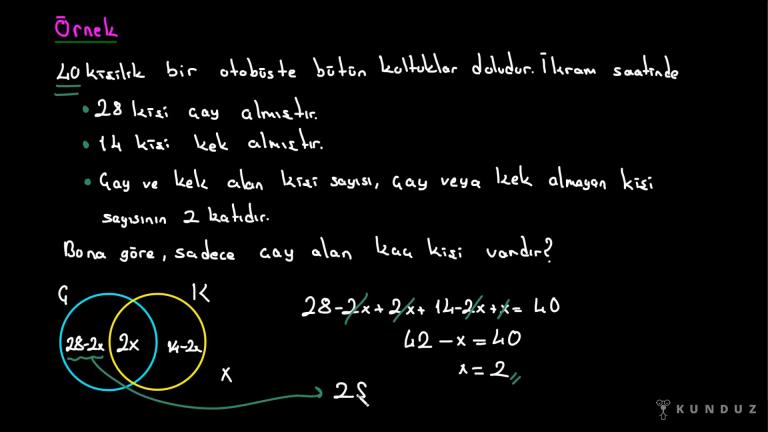 Örnek
40 kişilik bir otobüste bütün koltuklar doludur. İkram saatinde
• 28 kişi çay almıştır.
• 14 kişi kek almıştır.
• Çay ve kek alan kişi sayısı, çay veya kek almayan kişi
sayısının 2 katıdır.
Bona göre, sadece çay alan kaç kişi vardır?
Ç K
28-2x 2x 14-2x
x
28-2x+2x+14-2x+x=40
42-x=40
x=2
KUNDUZ